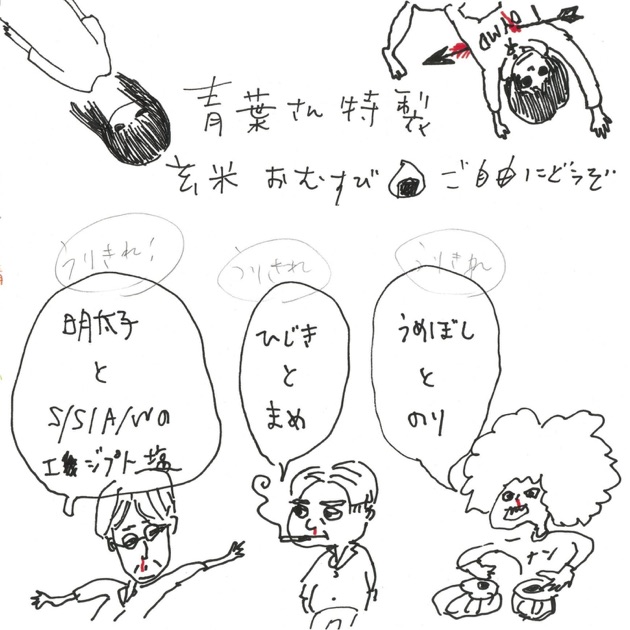 青葉さん特製
玄米おむすび ご自由にどうぞ
うりきれ!
うりきれ
うりきれ
明太子
と
S/S/A/Wの
エジプト塩
ひじき
と
まめ
うめぼし
と
のり
ナン